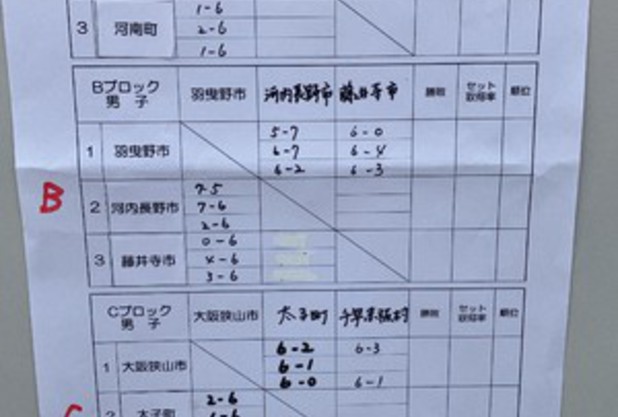 1-6
3 河南町 2-6
1-6
Bブロック 男子 羽曳野市 河内長野市 藤井寺市 勝敗 セット取得率 順位
5-7 6-0
1 羽曳野市 6-7 6-4
6-2 6-3
B
7-5
2 河内長野市 7-6
2-6
0-6
3 藤井寺市 4-6
3-6
Cブロック 男子 大阪狭山市 太子町 千早赤阪村 勝敗 セット取得率 順位
6-2 6-3
1 大阪狭山市 6-1
6-0 6-1
2-6
2 太子町